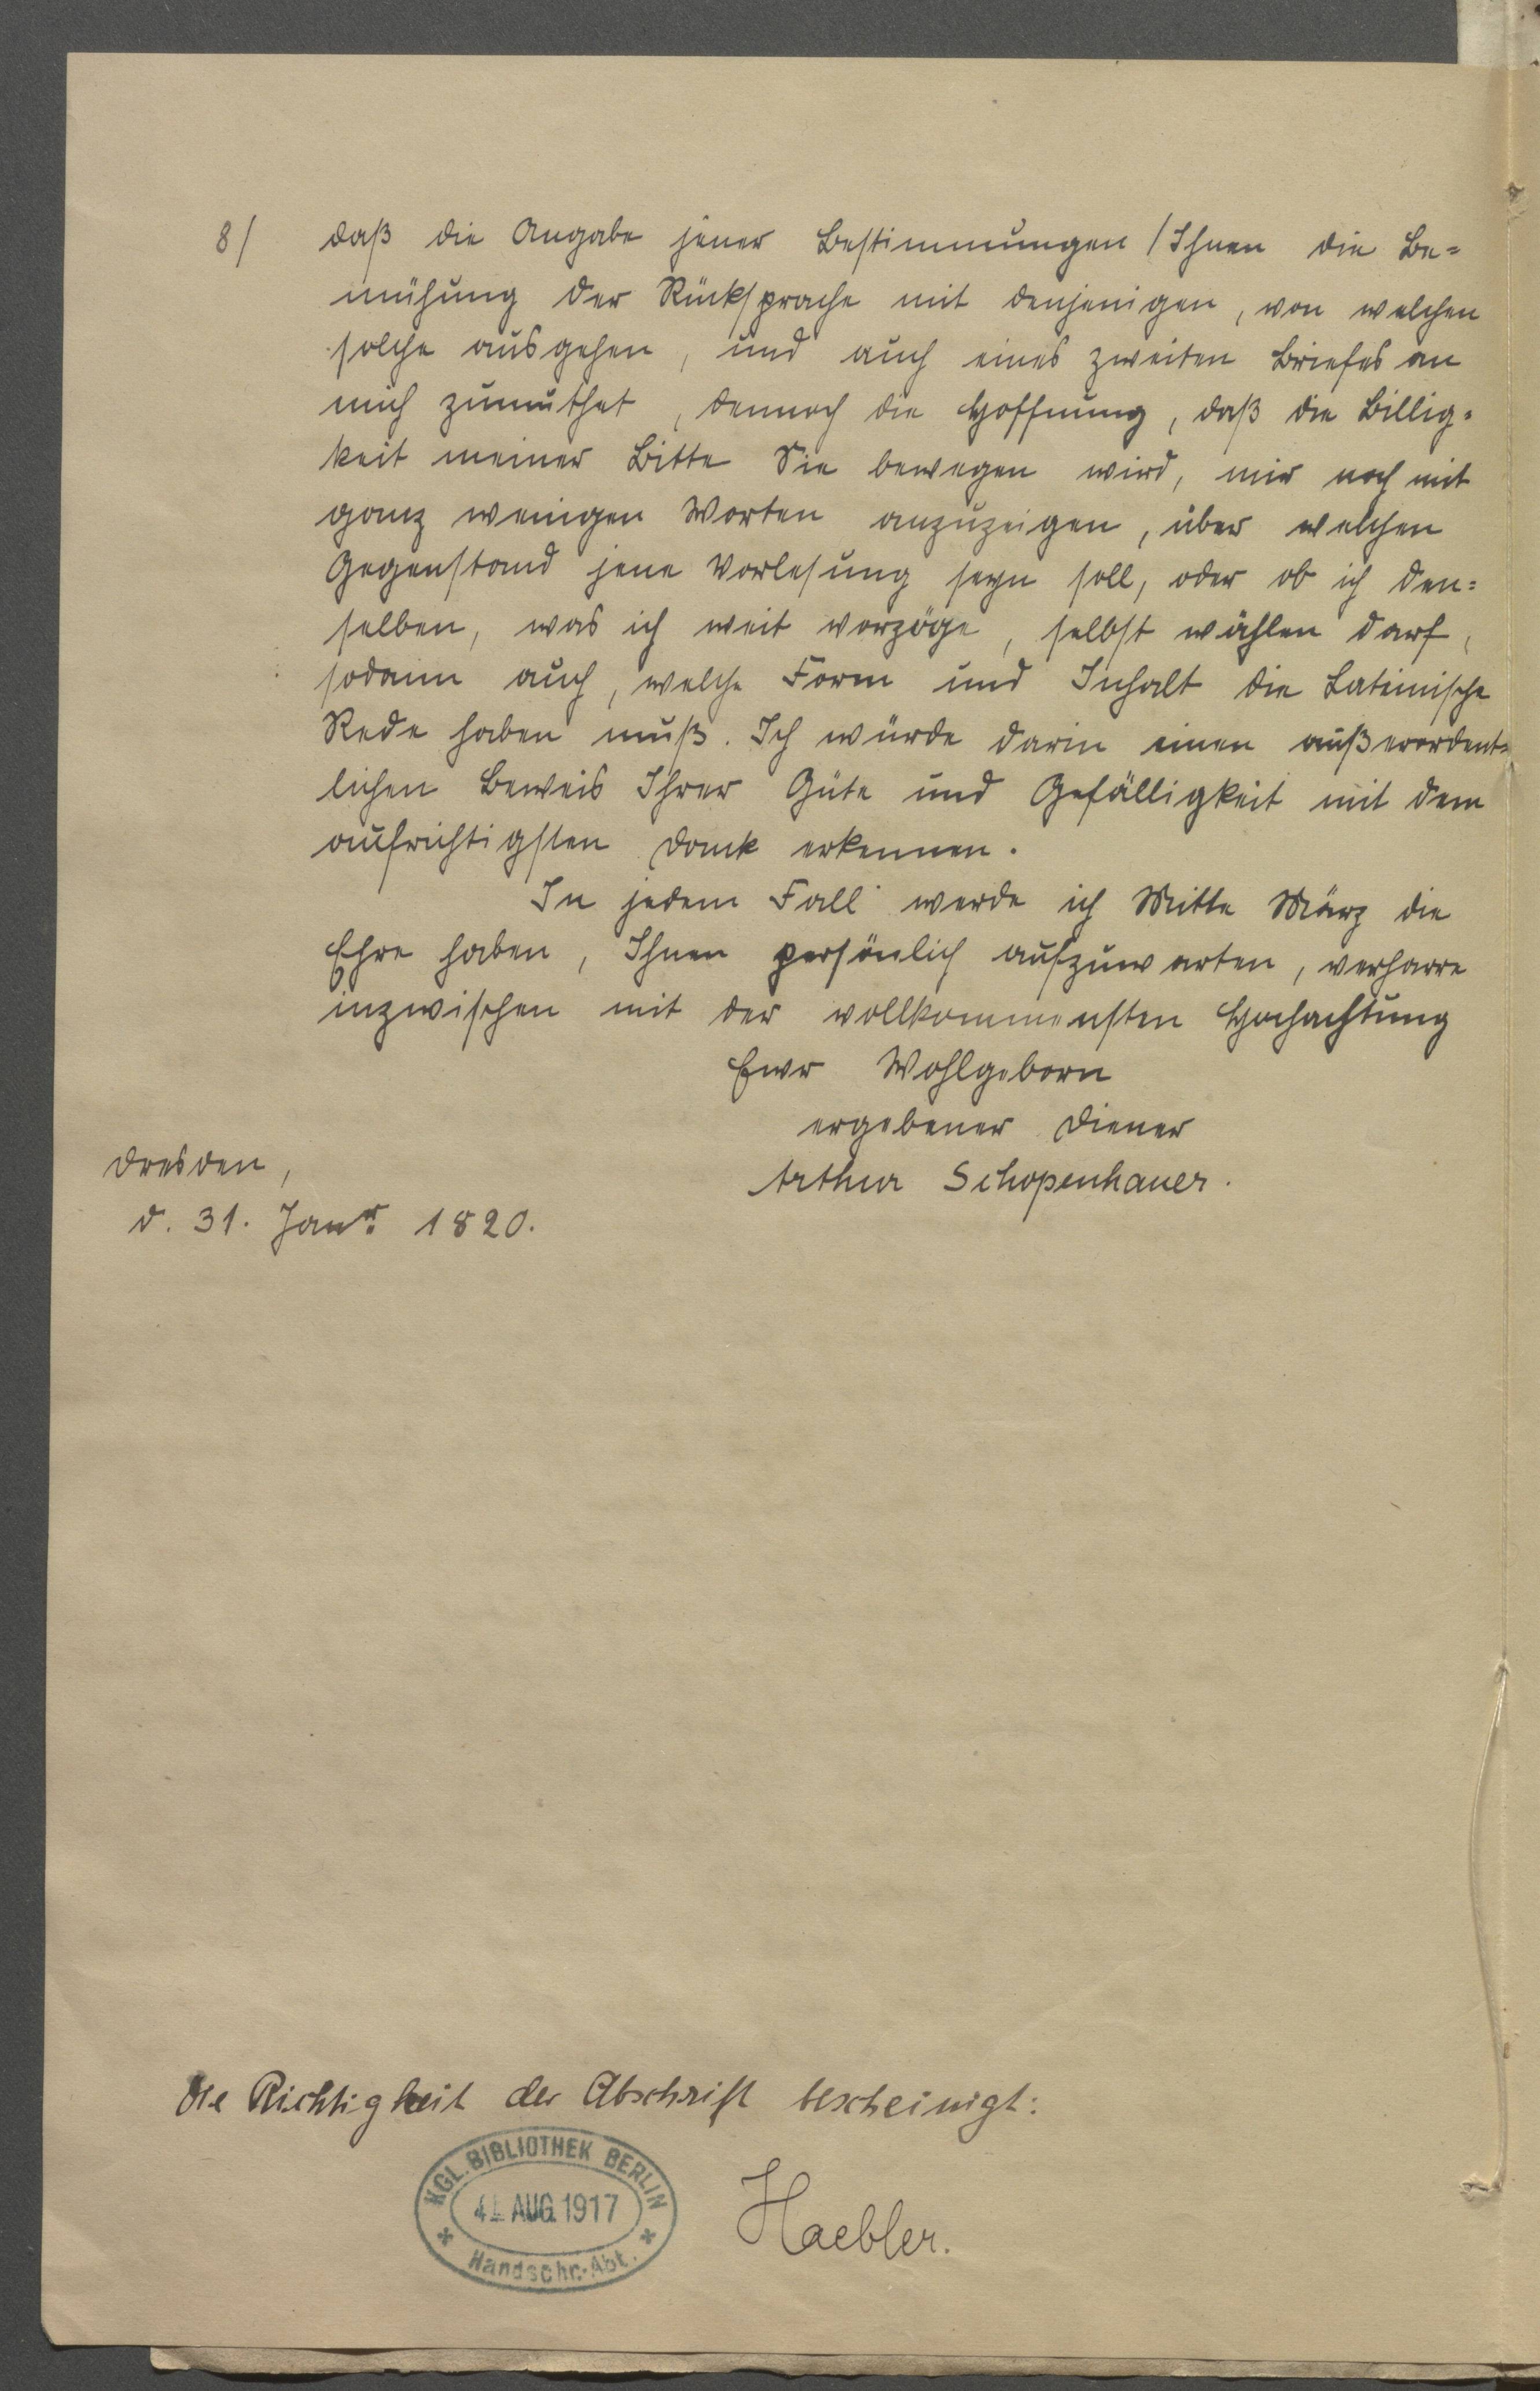 8/ daß die Angabe jener Bestimmungen / Ihnen die Be=
mühung der Rücksprache mit denjenigen, von welchen
solche ausgehen, und auch eines zweiten Briefes an
mich zumuthet, dennoch die Hoffnung, daß die Billig=
keit meiner Bitte Sie bewegen wird, mir noch mit
ganz wenigen Worten anzuzeigen, über welchen
Gegenstand jene Vorlesung seyn soll, oder ob ich den=
selben, was ich weit vorzöge, selbst wählen darf,
sodann auch, welche Form und Inhalt die Lateinische
Rede haben muß. Ich würde darin einen außerordent=
lichen Beweis Ihrer Güte und Gefälligkeit mit dem
aufrichtigsten Dank erkennen.
In jedem Fall werde ich Mitte März die
Ehre haben, Ihnen persönlich aufzuwarten, verharre
inzwischen mit der vollkommensten Hochachtung
Ewr Wohlgeborn
ergebener Diener
Arthur Schopenhauer.
Dresden,
d. 31. Janr 1820.
Die Richtigkeit der Abschrift bescheinigt:
KGL. BIBLIOTHEK BERLIN
AUG. 1917
Handschr.-Abt.
Haebler.